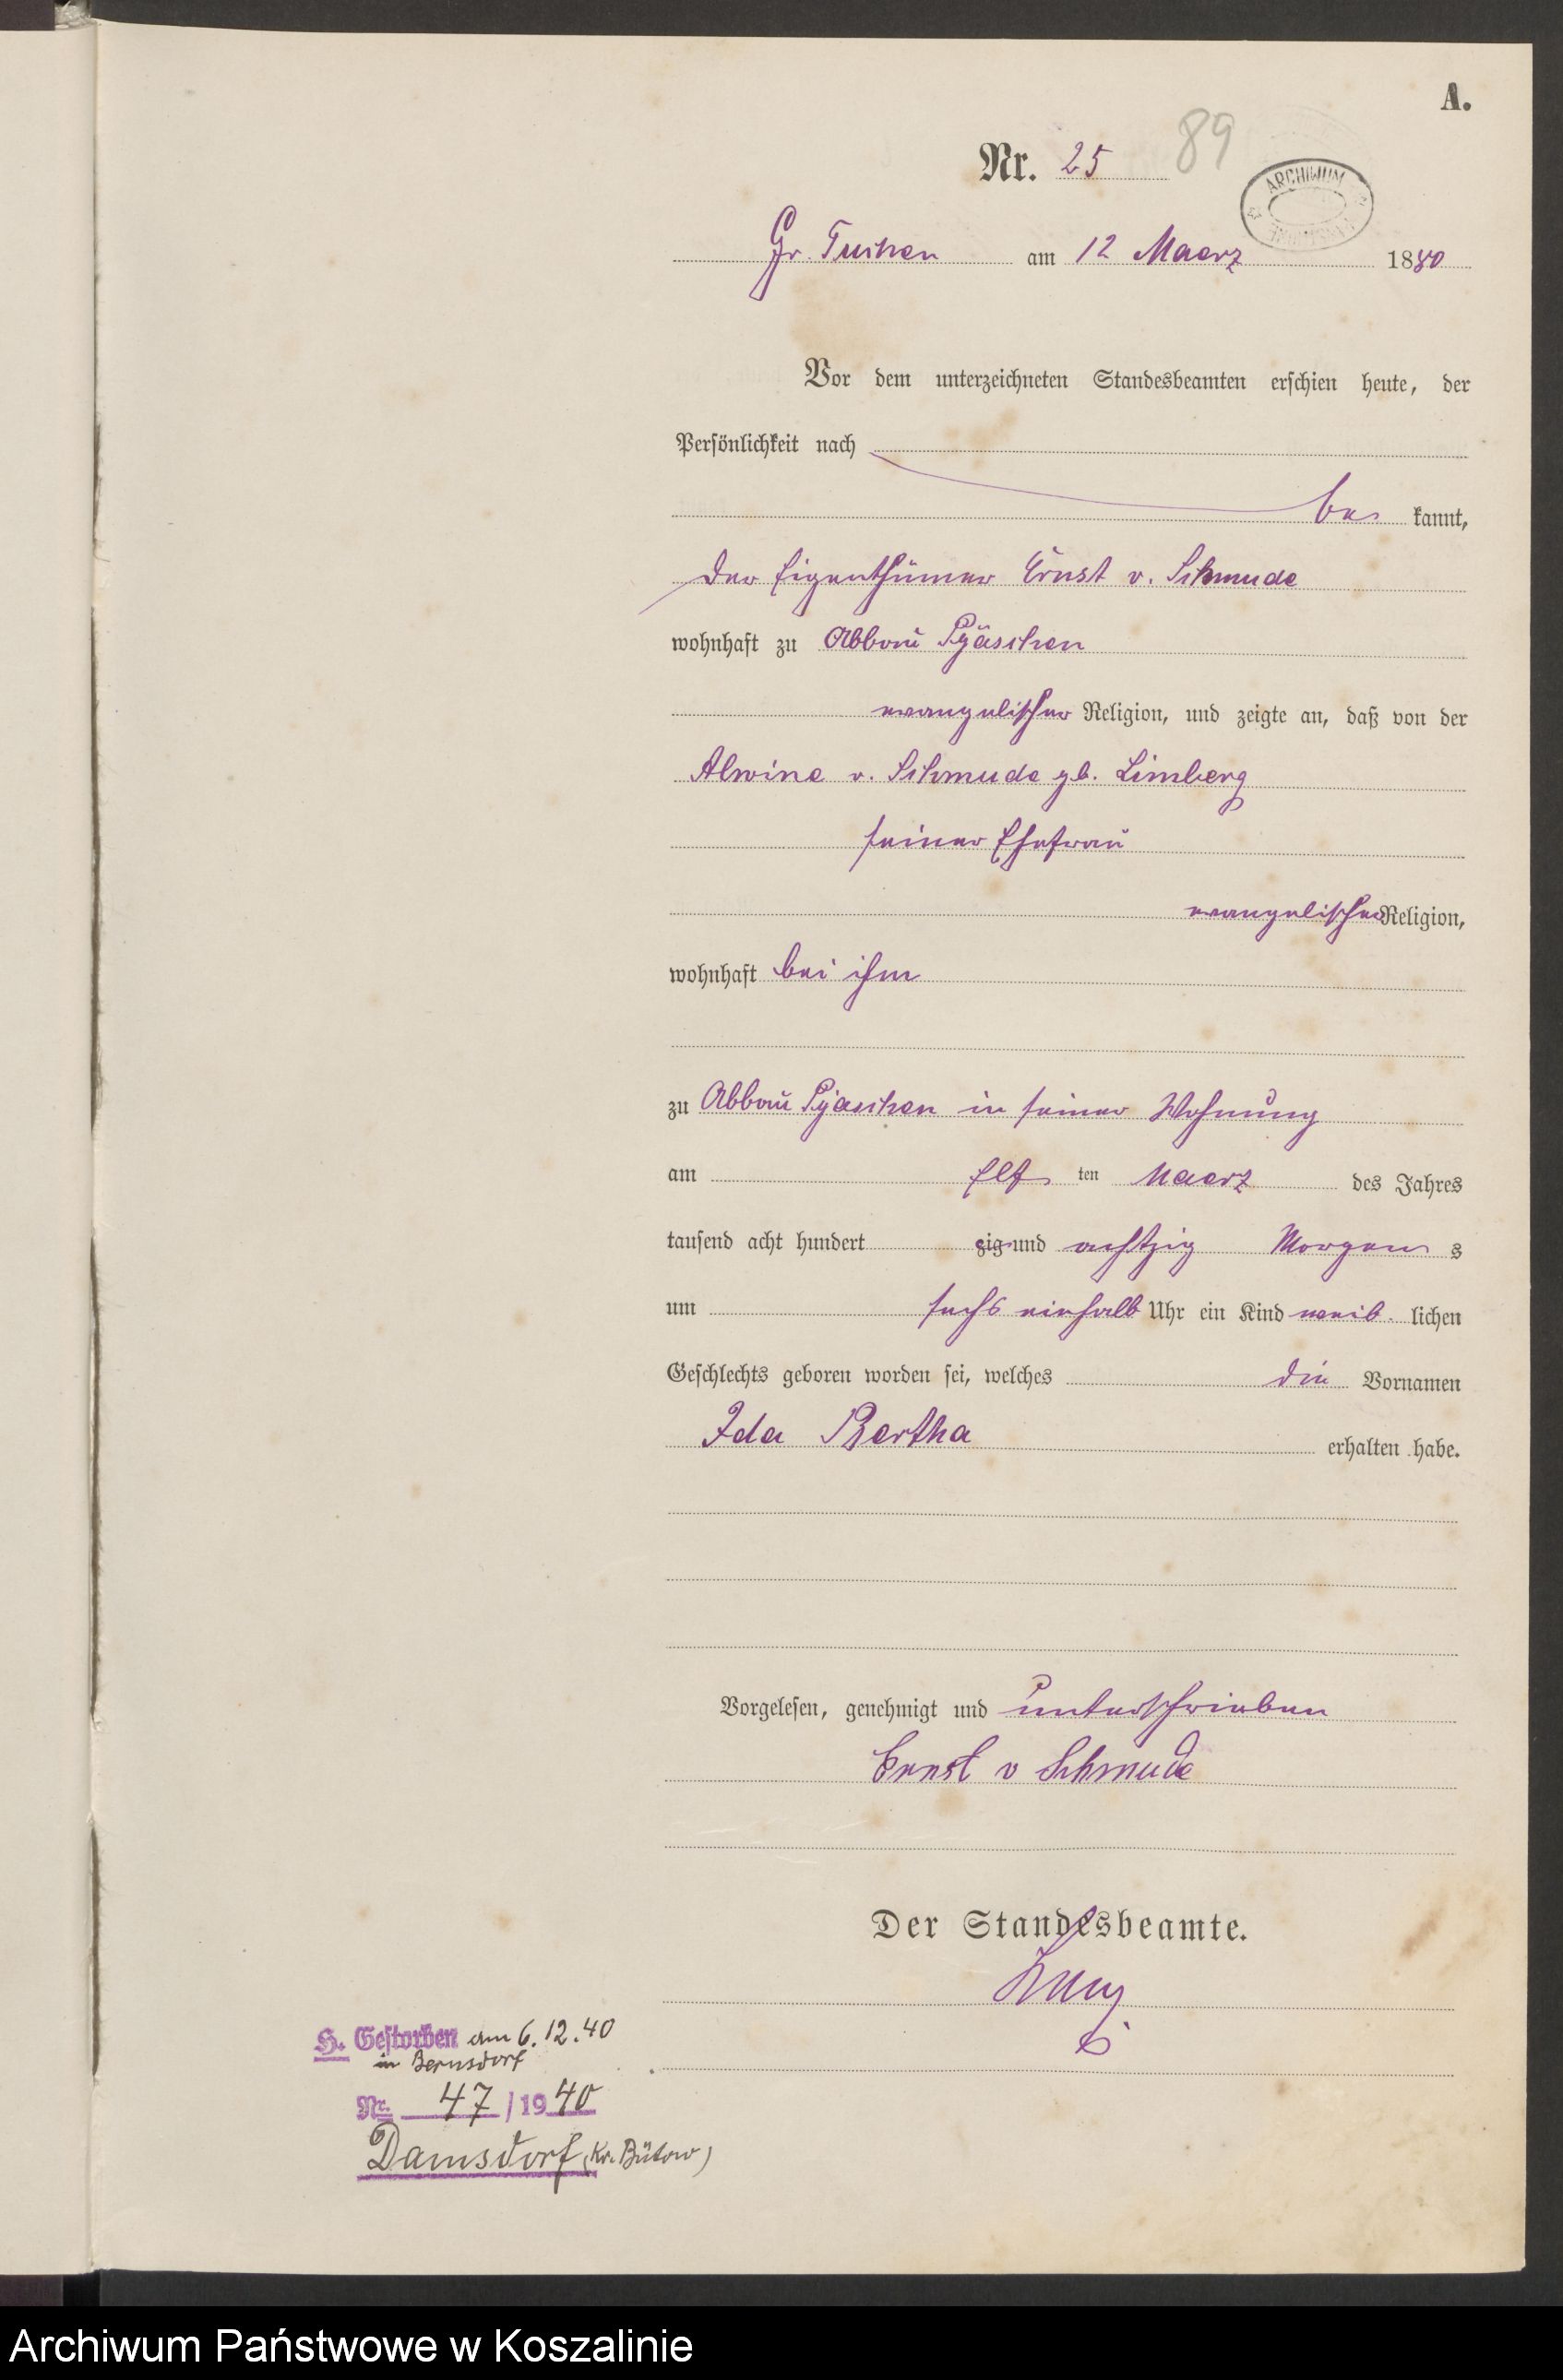 A.
Nr. 25 89
ARCHIWUM
Gr. Tuchen am 12 Maerz 1880
Vor dem unterzeichneten Standesbeamten erschien heute, der
Persönlichkeit nach
be kannt,
der Eigenthümer Ernst v. Schmude
wohnhaft zu Abbau Pyaschen
evangelischer Religion, und zeigte an, daß von der
Alwine v. Schmude gb. Limberg
seiner Ehefrau
evangelischer Religion,
wohnhaft bei ihm
zu Abbau Pyaschen in seiner Wohnung
am elf ten Maerz des Jahres
tausend acht hundert zig und achtzig Morgen s
um sechs einhalb Uhr ein Kind weib. lichen
Geschlechts geboren worden sei, welches die Vornamen
Ida Bertha erhalten habe.
Vorgelesen, genehmigt und unterschrieben
Ernst v Schmude
Der Standesbeamte.
H. Gestorben am 6.12.40
in Bernsdorf
Nr. 47 / 1940
Damsdorf (Kr. Bütow)
Archiwum Państwowe w Koszalinie